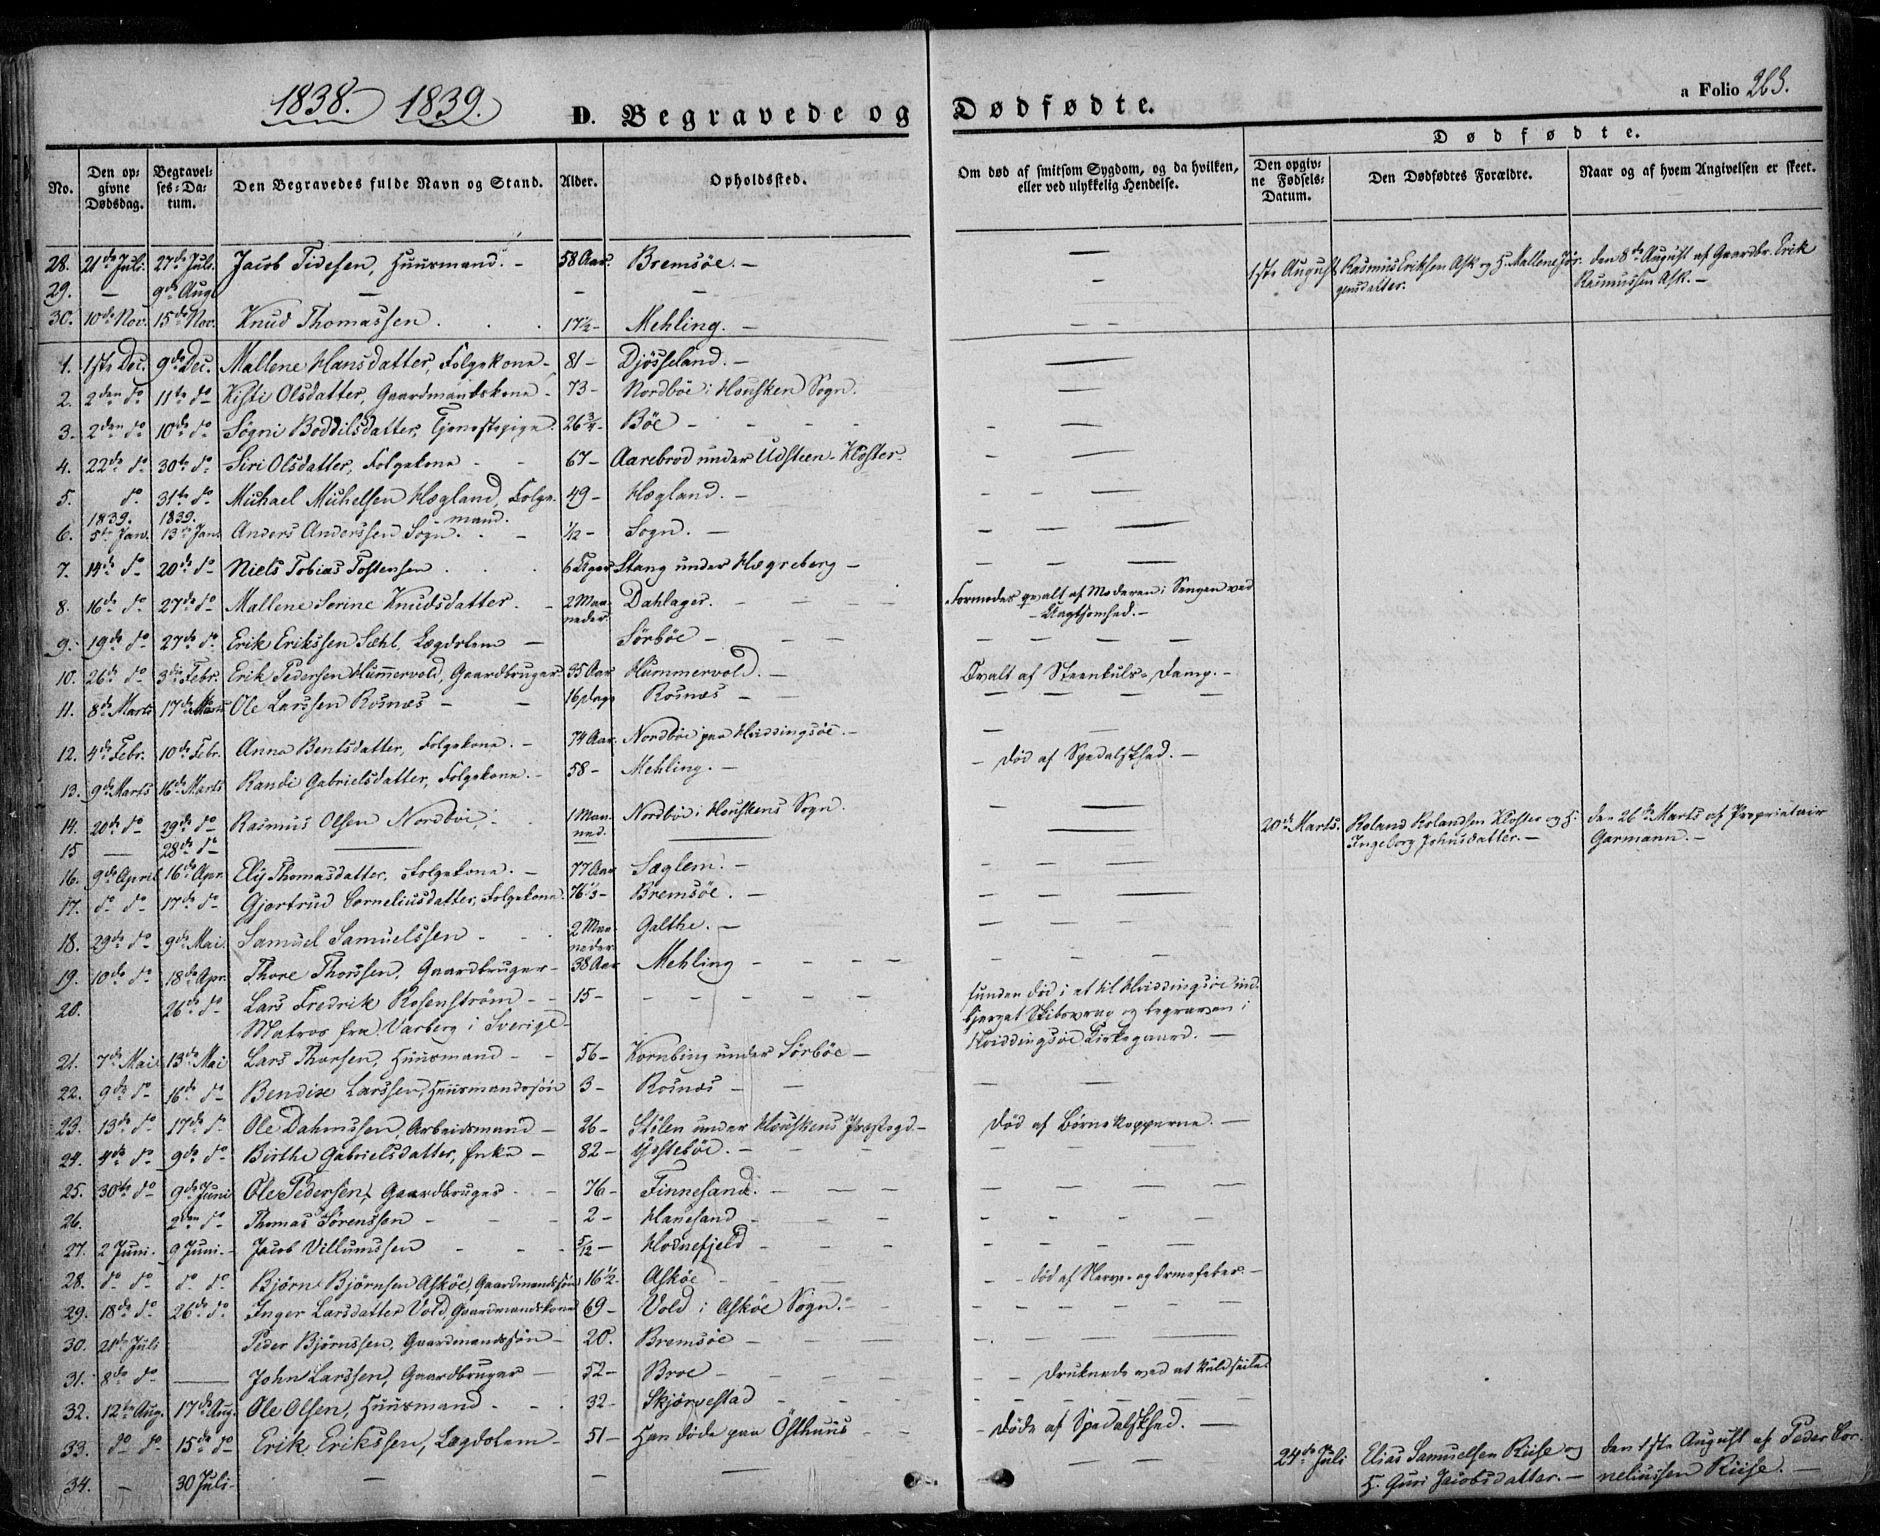 1838. 1839. D. Begravede og Dødfødte. a Folio 263.
Dødfødte.
No. Den opgivne Dødsdag. Begravelses-Datum. Den Begravedes fulde Navn og Stand. Alder. Opholdssted. Om død af smitsom Sygdom, og da hvilken, eller ved ulykkelig Hendelse. Den opgivne Fødsels-Datum. Den Dødfødtes Forældre. Naar og af hvem Angivelsen er skeet.
28. 21de Juli. 27de Juli. Jacob Tidesen, Huusmand. - 58 Aar. Bremsøe. - —
29. — 9de Aug. — - - - 1ste August Rasmus Eriksen Ask og H. Mallene Jørgensdatter. den 8de August af Gaardbr. Erik Rasmussen Ask. -
30. 10de Nov. 15de Nov. Knud Thomassen. 17½ - Mehling. - - -
1. 1ste Dec. 9de Dec. Mallene Hansdatter, Folgekone - 81 - Djösseland. - —
2. 2den do 11te do Kisti Olsdatter, Gaardmandskone - 73 - Nordböe i Housken Sogn. —
3. 2den do 10de do Søgni Boddilsdatter, Tjenestepige. 26¾ - Böe - - - -
4. 22de do 30te do Siri Olsdatter, Folgekone - - 67 - Aarebrod under Udsteen-Kloster. - —
5. do 31te do Michael Michelsen Hægland, Folgemand. 49 - Hægland. - - - —
1839. 1839.
6. 5te Jan. 13de Jan. Anders Anderssen Sogn. - - ½ - Sogn. - - - —
7. 14de do 20de do Niels Tobias Tostensen . . . 6 Dger Stang under Hægreberg - - - —
8. 16de do 27de do Mallene Serine Knudsdatter. - 2 Maaneder. Dahlager. - - - Formedes qvalt af Moderen i Sengen ved Uagtsomhed. -
9. 19de do 27de do Erik Erikssen Sæhl, Lægdslem - Sörböe - - - - - - -
10. 26de do 3die Febr. Erik Pedersen Hummervold, Gaardbruger 35 Aar Hummervold. - Qvalt af Steenkuls-Damp. -
11. 8de Marts 17de Marts Ole Larssen Rosnæs - - 16 dage Rosnæs - - - - - -
12. 4de Febr. 10de Febr. Anna Bentsdatter, Folgekone. - 74 Aar. Nordböe paa Hviddingsöe. - - -
13. 9de Marts 16de Marts Randi Gabrielsdatter, Folgekone. - 58 - Mehling. - - død af Spedalskhed. -
14. 20de do 29de do Rasmus Olsen Nordböe, - . 1 Maaned. Nordböe i Houskens Sogn. - -
15 — 28de do — — — — 20de Marts. Roland Rolandsen Kloster og H. Ingeborg Johnsdatter. - den 26de Marts af Proprietair Garmann. -
16. 9de April 16de Apr. Elij Thomasdatter, Folgekone. - 77 Aar Sæglem. - - -
17. do do 17de do Gjertrud Corneliusdatter, Folgekone. 76⅓ - Bremsöe. - - - —
18. 29de do 9de Mai. Samuel Samuelssen - . . 2 Maaneder Galthe. - - - -
19. 10de do 18de Apr. Thore Thorssen, Gaardbruger - 38 Aar Mehling - - - - - - -
20. 26de do Lars Fredrik Rosenström - - 15 - - - - - - funden død i et til Hviddingsöe ind-
Matros fra Varberg i Sverige - bjerget Skibsvrag og begraven i Hviddingsöe Kirkegaard. -
21. 7de Mai 13de Mai Lars Thorsen, Huusmand - - 56 - Kornbing under Sörböe -
22. 9de do 16de do Bendix Larssen, Huusmandssön 3 - Rosnæs - - - -
23. 13de do 17de do Ole Dahmssen, Arbeidsmand - 26 - Stölen under Houskens Præstegd - død af Børnekopperne. -
24. 4de do 9de do Birthe Gabrielsdatter, Enke - 82 - Ystebøe. - - - - -
25. 30te do 9de Juni Ole Pedersen, Gaardbruger - - 76 - Finnesand. - - - - - - -
26. 2den do Thomas Sørenssen - - - 2 - Hanesand - - - - - - -
27. 2 Juni. 9 Juni. - Jacob Villumssen - - - 5/12 - Hodnefjeld - - - - - - -
28. do do do do Björn Björnsen Asköe, Gaardmandssön 16½ - Asköe - - - - - død af Nerve- og Ormefeber. -
29. 18de do 26de do Inger Larsdatter Vold, Gaardmandskone 69 - Vold i Asköe Sogn. - - - - - - -
30. 21de Juli Peder Björnssen, Gaardmandssön - 20. Bremsöe - - - - - - -
31. 8de do — John Larssen, Gaardbruger - 52 - Broe - - - - - - druknede ved at kuldseile.
32. 12te Aug. 17de Aug. Ole Olsen, Huusmand - - . 32 - Skjörvestad - - - - - - -
33. do do 15de do Erik Erikssen, Lægdslem - 51 - Han døde paa Østhuus - - - Døde af Spedalskhed. -
34. - 30 Juli - — - — - - 24de Juli Elias Samuelsen Riise og H. Guri Jacobsdatter. - den 1ste August af Peder Corneliussen Riise. -